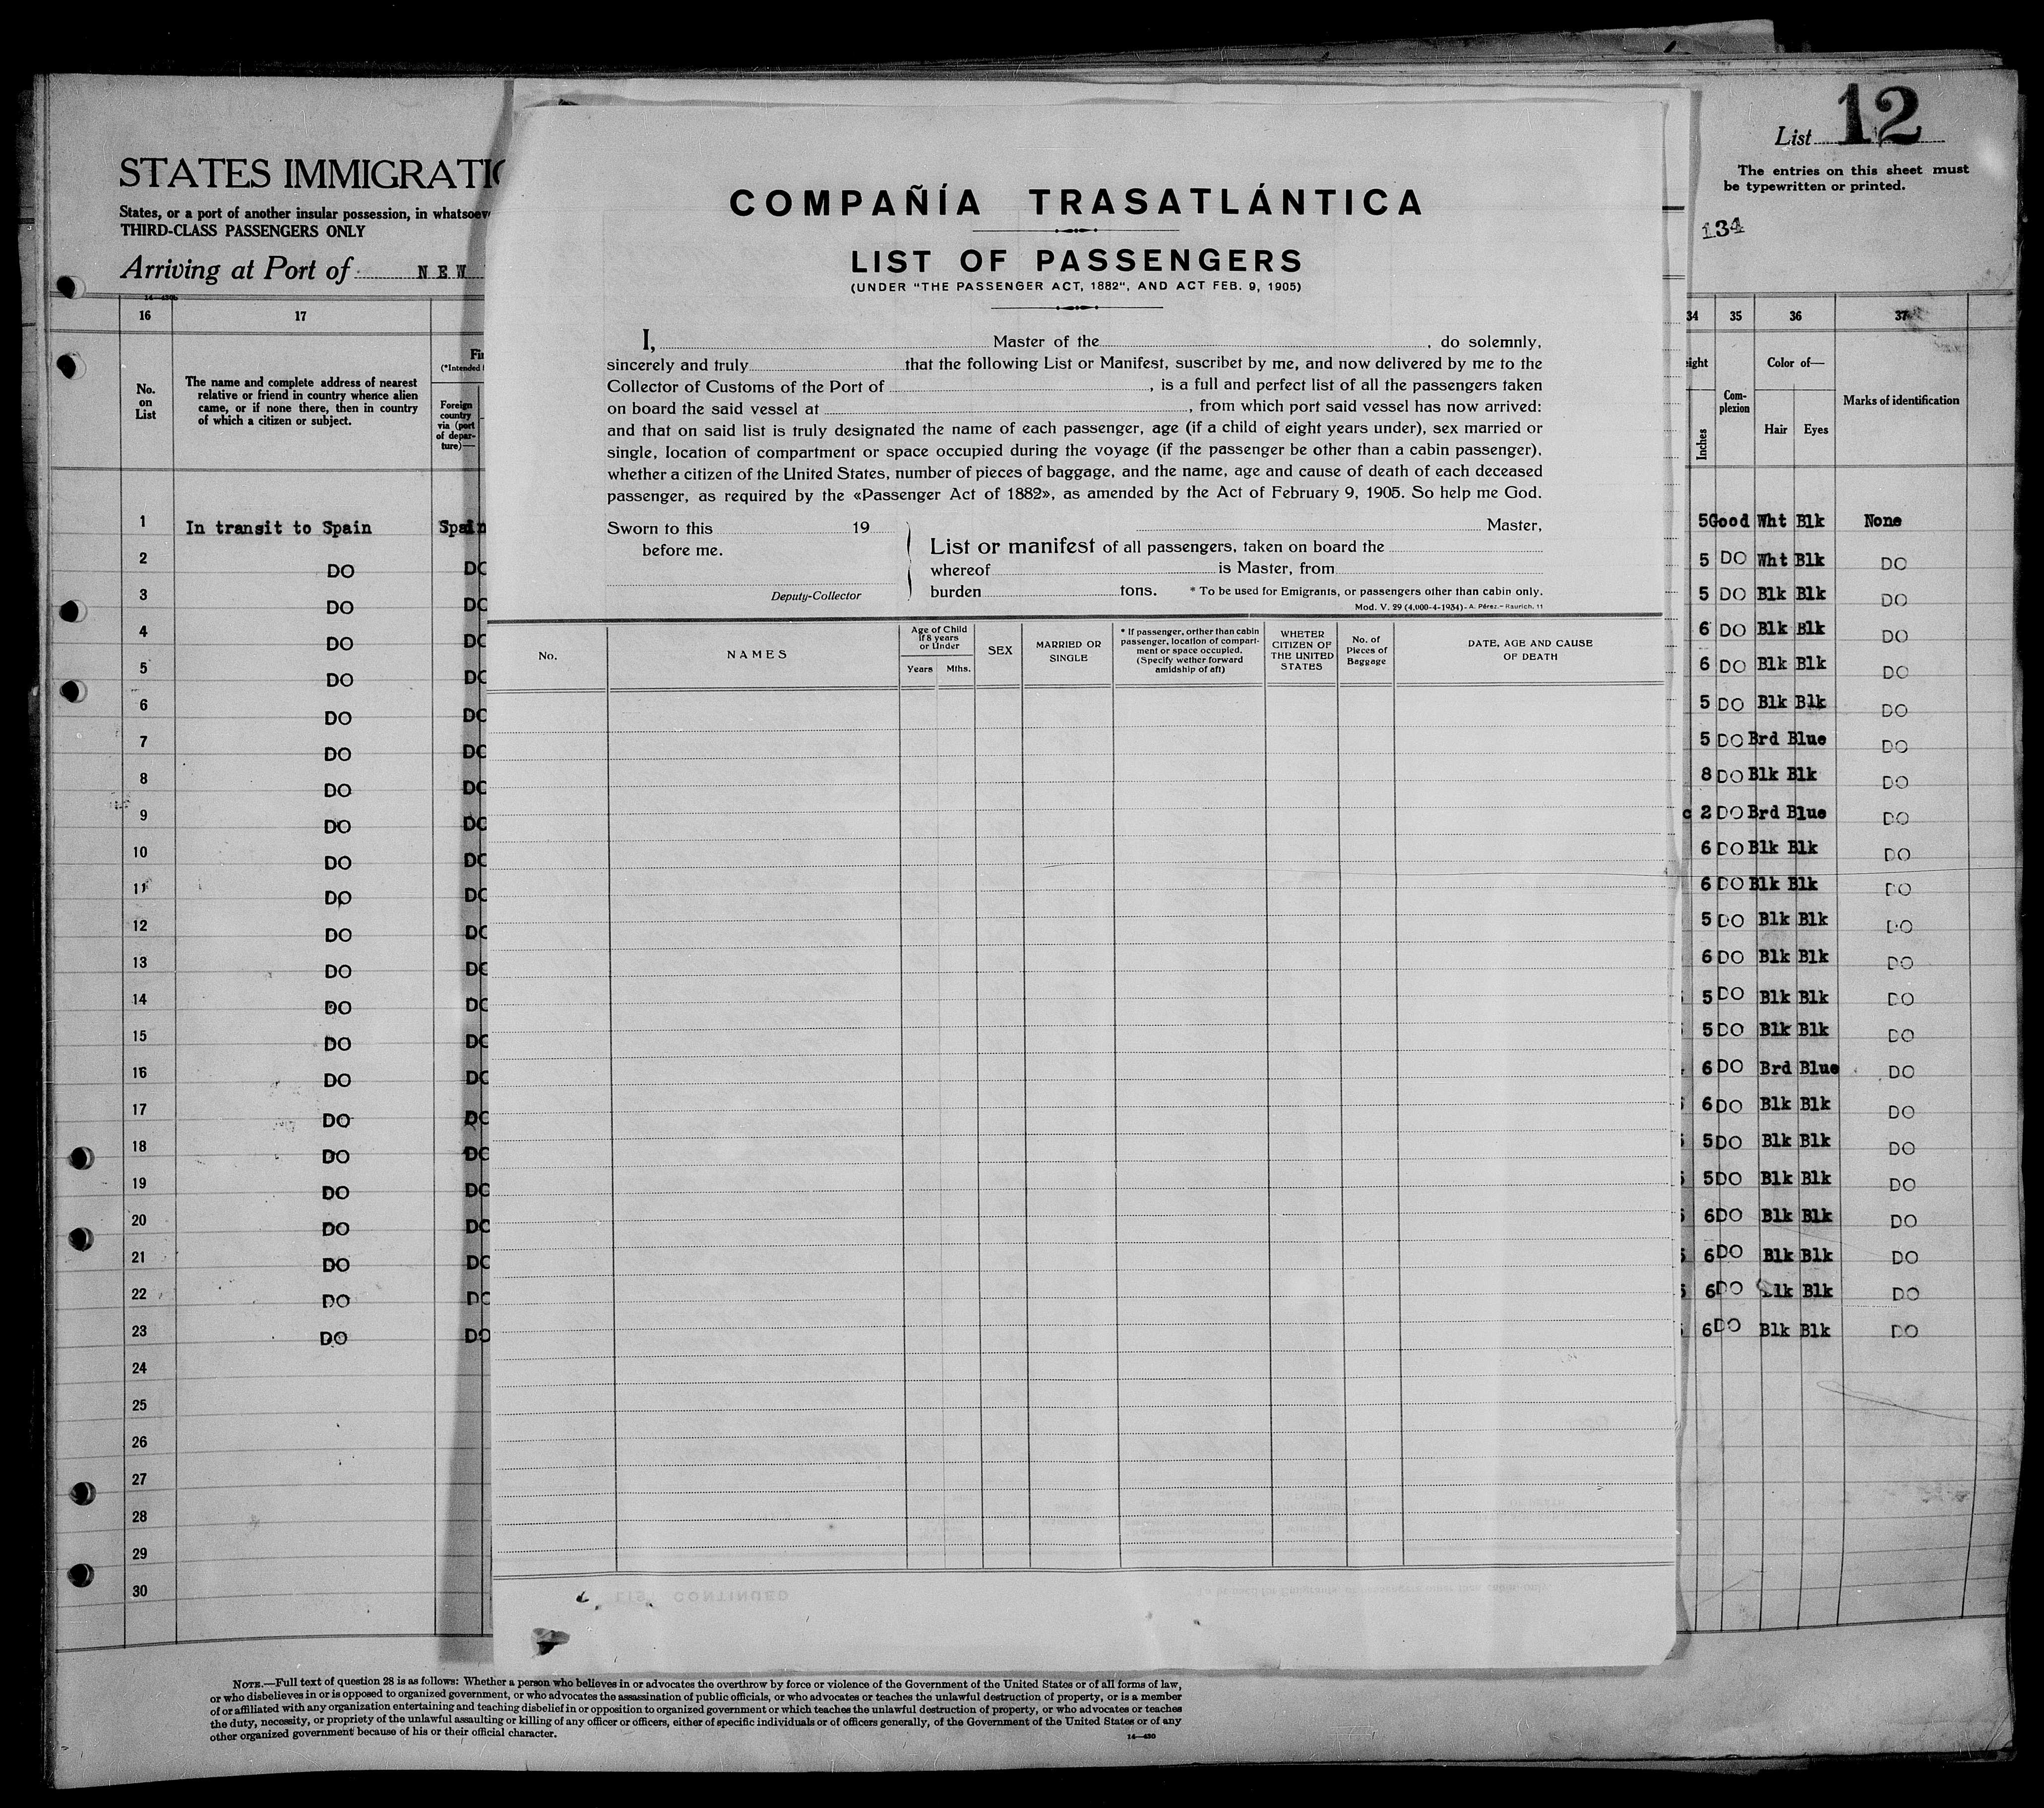 List 12
The entries on this sheet must
be typewritten or printed.
134
STATES IMMIGRATIO
States, or a port of another insular possession, in whatsoev
THIRD-CLASS PASSENGERS ONLY
Arriving at Port of NEW
COMPAÑÍA TRASATLÁNTICA
LIST OF PASSENGERS
(UNDER "THE PASSENGER ACT, 1882", AND ACT FEB. 9, 1905)
I, Master of the , do solemnly,
sincerely and truly that the following List or Manifest, suscribet by me, and now delivered by me to the
Collector of Customs of the Port of , is a full and perfect list of all the passengers taken
on board the said vessel at , from which port said vessel has now arrived:
and that on said list is truly designated the name of each passenger, age (if a child of eight years under), sex married or
single, location of compartment or space occupied during the voyage (if the passenger be other than a cabin passenger),
whether a citizen of the United States, number of pieces of baggage, and the name, age and cause of death of each deceased
passenger, as required by the «Passenger Act of 1882», as amended by the Act of February 9, 1905. So help me God.
Sworn to this 19
before me.
Deputy-Collector
Master,
List or manifest of all passengers, taken on board the
whereof is Master, from
burden tons. * To be used for Emigrants, or passengers other than cabin only.
Mod. V. 29 (4.000-4-1934) - A. Pérez. - Raurich, 11
No.
NAMES
Age of Child
if 8 years
or Under
Years Mths.
SEX
MARRIED OR
SINGLE
* If passenger, orther than cabin
passenger, location of compart-
ment or space occupied.
(Specify wether forward
amidship of aft)
WHETER
CITIZEN OF
THE UNITED
STATES
No. of
Pieces of
Baggage
DATE, AGE AND CAUSE
OF DEATH
14—430b
16 17
No.
on
List
The name and complete address of nearest
relative or friend in country whence alien
came, or if none there, then in country
of which a citizen or subject.
Fin
(*Intended
Foreign
country
via (port
of depar-
ture)—
34 35 36 37
eight
Inches
Com-
plexion
Color of—
Hair Eyes
Marks of identification
1 In transit to Spain Spain 5 Good Wht Blk None
2 DO DO 5 DO Wht Blk DO
3 DO DO 5 DO Blk Blk DO
4 DO DO 6 DO Blk Blk DO
5 DO DO 6 DO Blk Blk DO
6 DO DO 5 DO Blk Blk DO
7 DO DO 5 DO Brd Blue DO
8 DO DO 8 DO Blk Blk DO
9 DO DO 2 DO Brd Blue DO
10 DO DO 6 DO Blk Blk DO
11 DO DO 6 DO Blk Blk DO
12 DO DO 5 DO Blk Blk DO
13 DO DO 6 DO Blk Blk DO
14 DO DO 5 DO Blk Blk DO
15 DO DO 5 DO Blk Blk DO
16 DO DO 6 DO Brd Blue DO
17 DO DO 6 DO Blk Blk DO
18 DO DO 5 DO Blk Blk DO
19 DO DO 5 DO Blk Blk DO
20 DO DO 6 DO Blk Blk DO
21 DO DO 6 DO Blk Blk DO
22 DO DO 6 DO Blk Blk DO
23 DO DO 6 DO Blk Blk DO
24
25
26
27
28
29
30
NOTE.—Full text of question 28 is as follows: Whether a person who believes in or advocates the overthrow by force or violence of the Government of the United States or of all forms of law,
or who disbelieves in or is opposed to organized government, or who advocates the assassination of public officials, or who advocates or teaches the unlawful destruction of property, or is a member
of or affiliated with any organization entertaining and teaching disbelief in or opposition to organized government or which teaches the unlawful destruction of property, or who advocates or teaches
the duty, necessity, or propriety of the unlawful assaulting or killing of any officer or officers, either of specific individuals or of officers generally, of the Government of the United States or of any
other organized government because of his or their official character.
14—430